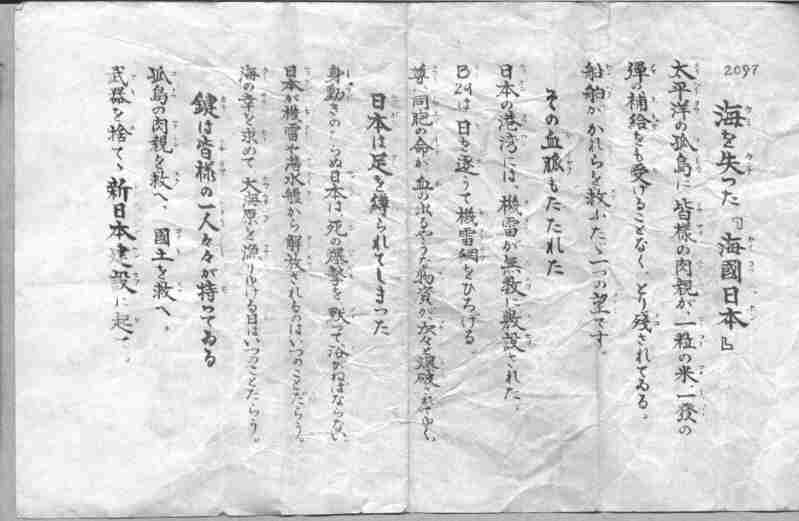 2097
海を失った『海國日本』
太平洋の孤島に皆様の肉親が、一粒の米一發の
彈の補給をも受けることなく、とり残されてゐる。
船舶がかれらを救ふたゞ一つの望です。
その血脈もたたれた
日本の港湾には、機雷が無数に敷設された。
B29は日を逐うて機雷網をひろげる。
同胞の命が、血の出るやうな物資が次々と爆破されてゆく。
日本は足を縛られてしまった
身動きのとらぬ日本は死の爆撃を黙って浴びねばならない。
日本が機雷や潜水艦から解放されるのはいつのことだらう。
海の幸を求めて大海原を漁りゆける日はいつのことだらう。
鍵は皆様の一人々々が持ってゐる
孤島の肉親を救へ、國土を救へ。
武器を捨てゝ新日本建設に起て。